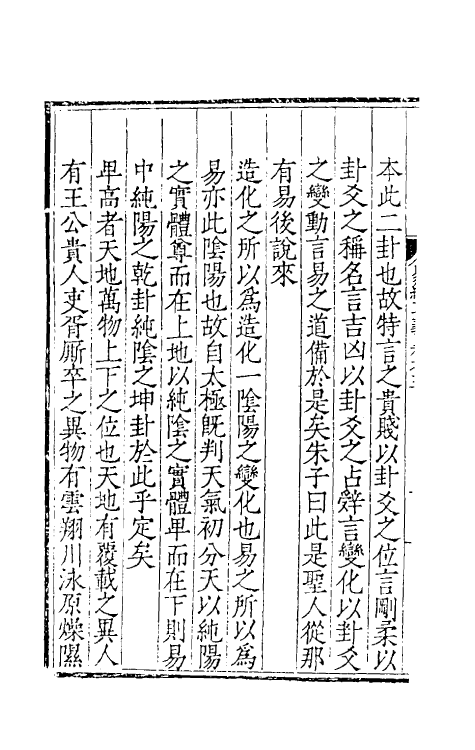 本此二卦也故特言之貴賤以卦爻之位言剛柔以
卦爻之稱名言吉凶以卦爻之占辭言變化以卦爻
之變動言易之道備於是矣朱子曰此是聖人從那
有易後說來
造化之所以為造化一陰陽之變化也易之所以為
易亦此陰陽也故自太極既判天氣初分天以純陽
之實體尊而在上地以純陰之實體卑而在下則易
中純陽之乾卦純陰之坤卦於此乎定矣
卑高者天地萬物上下之位也天地有覆載之異人
有王公貴人吏胥厮卒之異物有雲翔川泳原燥隰